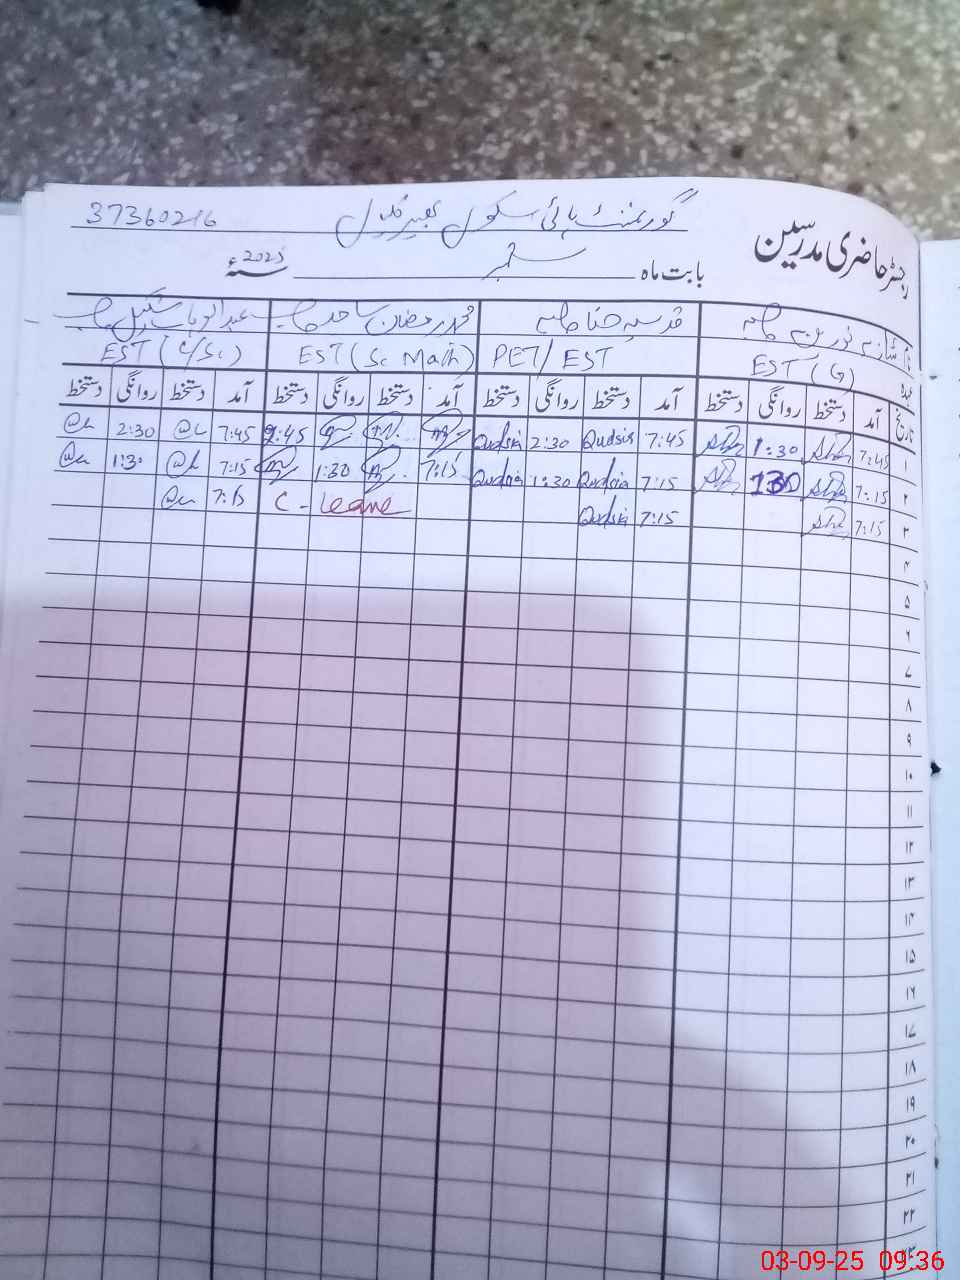 رجسٹر حاضری مدرسین
گورنمنٹ ہائی سکول 37360216
بابت ماہ ستمبر سنۂ 2025
نام شازیہ نورین صاحبہ قدسیہ حنا صاحبہ محمد رمضان ساجد صاحب عبدالوہاب شکیل صاحب
عہدہ EST (G) PET/ EST EST (Sc Math) EST (C/Sc)
تاریخ آمد دستخط روانگی دستخط آمد دستخط روانگی دستخط آمد دستخط روانگی دستخط آمد دستخط روانگی دستخط
۱ 7:45 1:30 7:45 Qudsia 2:30 Qudsia 2:45 7:45 2:30
۲ 7:15 1:30 7:15 Qudsia 1:30 Qudsia 7:15 1:30 7:15 1:30
۳ 7:15 7:15 Qudsia C - Leave 7:15
۴
۵
۶
۷
۸
۹
۱۰
۱۱
۱۲
۱۳
۱۴
۱۵
۱۶
۱۷
۱۸
۱۹
۲۰
۲۱
۲۲
۲۳
03-09-25 09:36